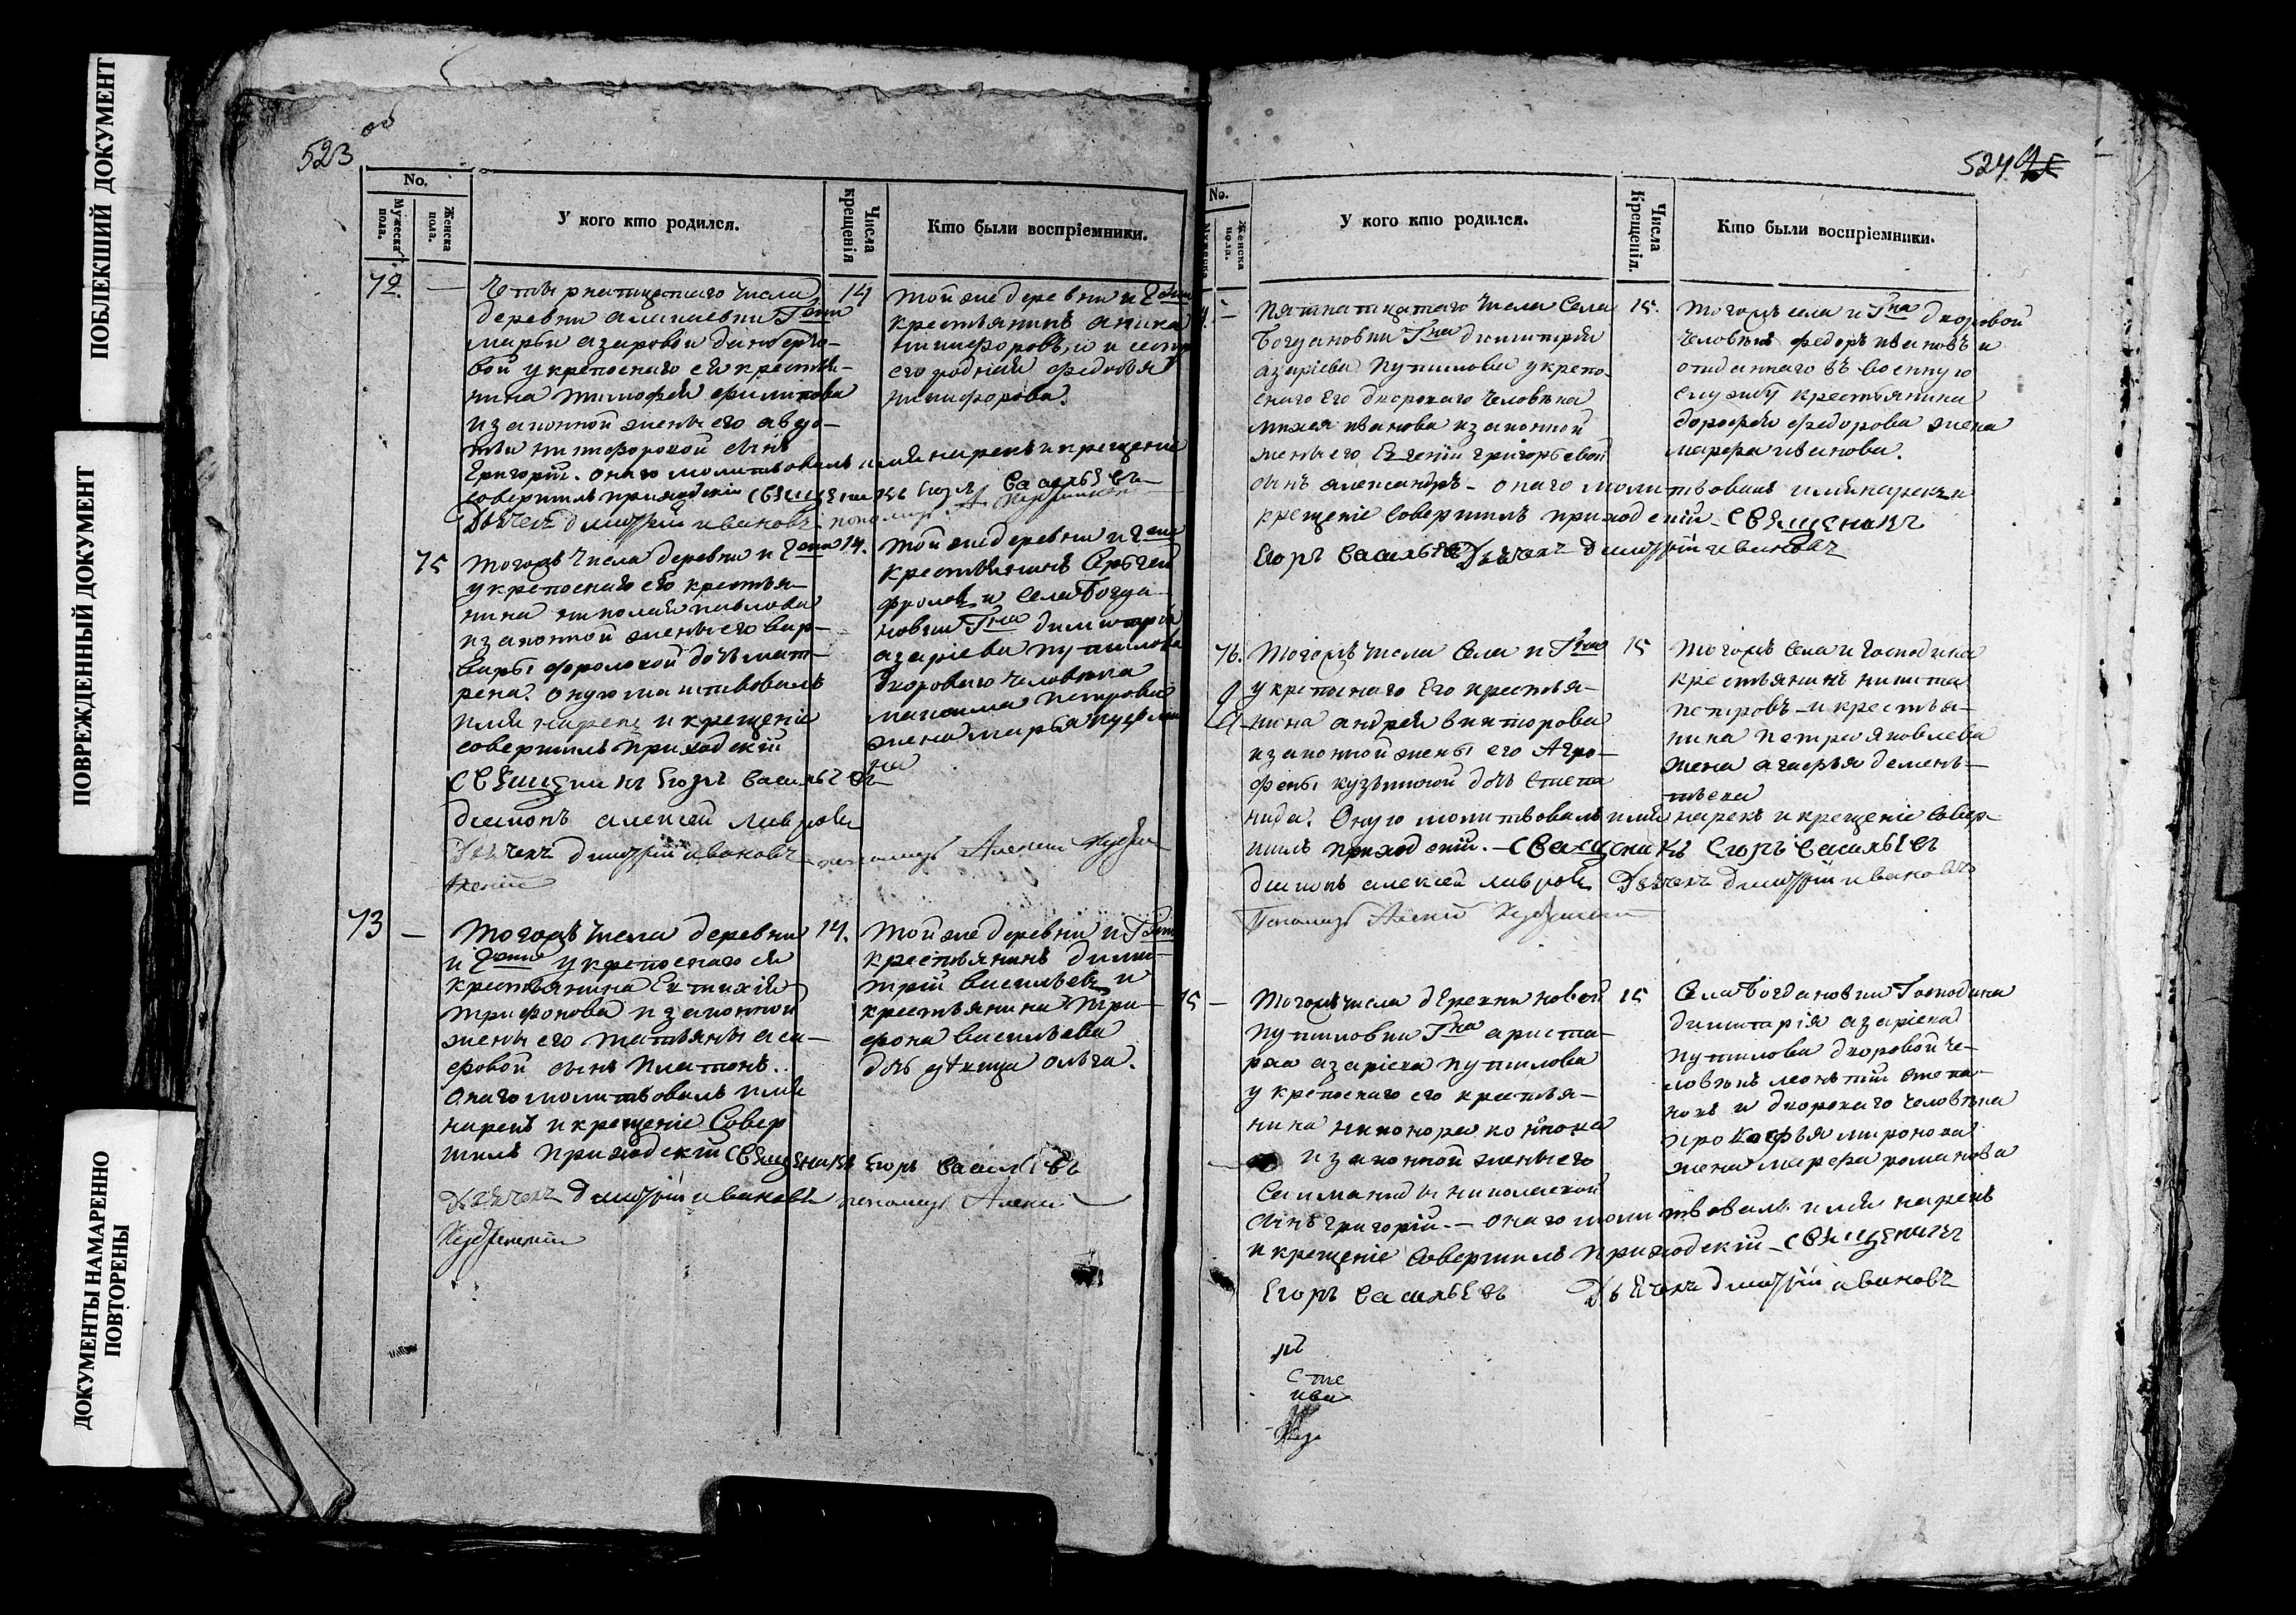 ПОБЛЕКШИЙ ДОКУМЕНТ
ПОВРЕЖДЕННЫЙ ДОКУМЕНТ
ДОКУМЕНТЫ НАМАРЕНО
ПОВТОРЕНЫ
523 об
No.
Мужеска пола.
Женска пола.
У кого кто родился.
Числа крещенія
Кто были воспріемники.
72. —
Четырнатцетаго числа
деревни
марьи азаровой
вой укрепоснаго ея крестья-
нина тимофея филипова
иззаконной жены его авдо-
тьи никифоровой сынъ
Григорій. онаго молитвовалъ имя нарекъ и крещение
совершилъ приходскій свещенникъ Егоръ Васильевъ
Дьячекъ дмитрій ивановъ пономарь
14
тойже деревни и
крестьянинъ
никифоровъ, и
его родная федосья
никифорова.
75
Тогожъ числа деревни и
укрепоснаго его крестья-
нина николая павлова
иззаконной жены его вар-
вары фроловой дочь мат-
рена. оную молитвовалъ
имя нарекъ и крещеніе
совершилъ приходскій
свещенникъ Егоръ Васильевъ
диаконъ алексей лавровъ
Дьячекъ дмитрій ивановъ пономарь Алексей
14.
тойже деревни и
крестьянинъ Сергей
фроловъ и села богда-
новки Гна димитрія
азаріева путилова
двороваго человека
максима петрова
жена марья
на
73 —
Тогожъ числа деревни
и укрепоснаго ея
крестьянина Евтихія
трифонова иззаконной
жены его татьяны аса-
фовой сынъ платонъ.
онаго молитвовалъ имя
нарекъ и крещеніе Совер
шилъ приходскій свещенникъ Егоръ Васильевъ
Дьячекъ дмитрій ивановъ пономарь Алексей
14.
тойже деревни и
крестьянинъ дими-
трій васильевъ и
крестьянина три-
фона васильева
дочь девица ольга.
524
No.
Мужеска
Женска пола.
У кого кто родился.
Числа Крещенія.
Кто были воспріемники.
—
Пятнатцатаго числа Села
Богдановки Гна димитрія
азаріева путилова укрепо-
снаго его дворового человека
михея иванова иззаконной
жены его Евгении григорьевой
сынъ александръ - онаго молитвовалъ имя нарекъ и
крещеніе совершилъ приходскій - свещенникъ
Егоръ Васильевъ Дьячекъ дмитрій ивановъ
15.
тогожъ села и Гна дворовой
человекъ федоръ ивановъ и
отданнаго въ военную
службу крестьянина
дорофея федорова жена
марфа иванова.
76.
Тогожъ числа Села и Гна
укрепоснаго его крестья-
нина андрея викторова
иззаконной жены его Агро-
фены кузьминой дочь степа
нида. Оную молитвовалъ имя нарекъ и крещеніе совер-
шилъ приходскій. - Свещеникъ Егоръ Васильевъ
диаконъ алексей лавровъ Дьячекъ дмитрій ивановъ
Пономарь Алексей
15
Тогожъ Села и господина
крестьянинъ никита
петровъ - и крестья-
нина петра яковлева
жена агафья демень-
тьева
75 —
Тогожъ числа деревни новой
путиловки Гна ариста-
рха азаріева путилова
укрепоснаго его крестья-
нина никонора
иззаконной жены его
николаевой
сынъ григорій. - онаго молитвовалъ имя нарекъ
и крещеніе совершилъ приходскій - свещеникъ
Егоръ Васильевъ Дьячекъ дмитрій ивановъ
15
Села богдановки Господина
димитрія азаріева
путилова дворовой че-
ловекъ леонтій степа-
новъ и двороваго человека
прокофья миронова
жена марфа романова